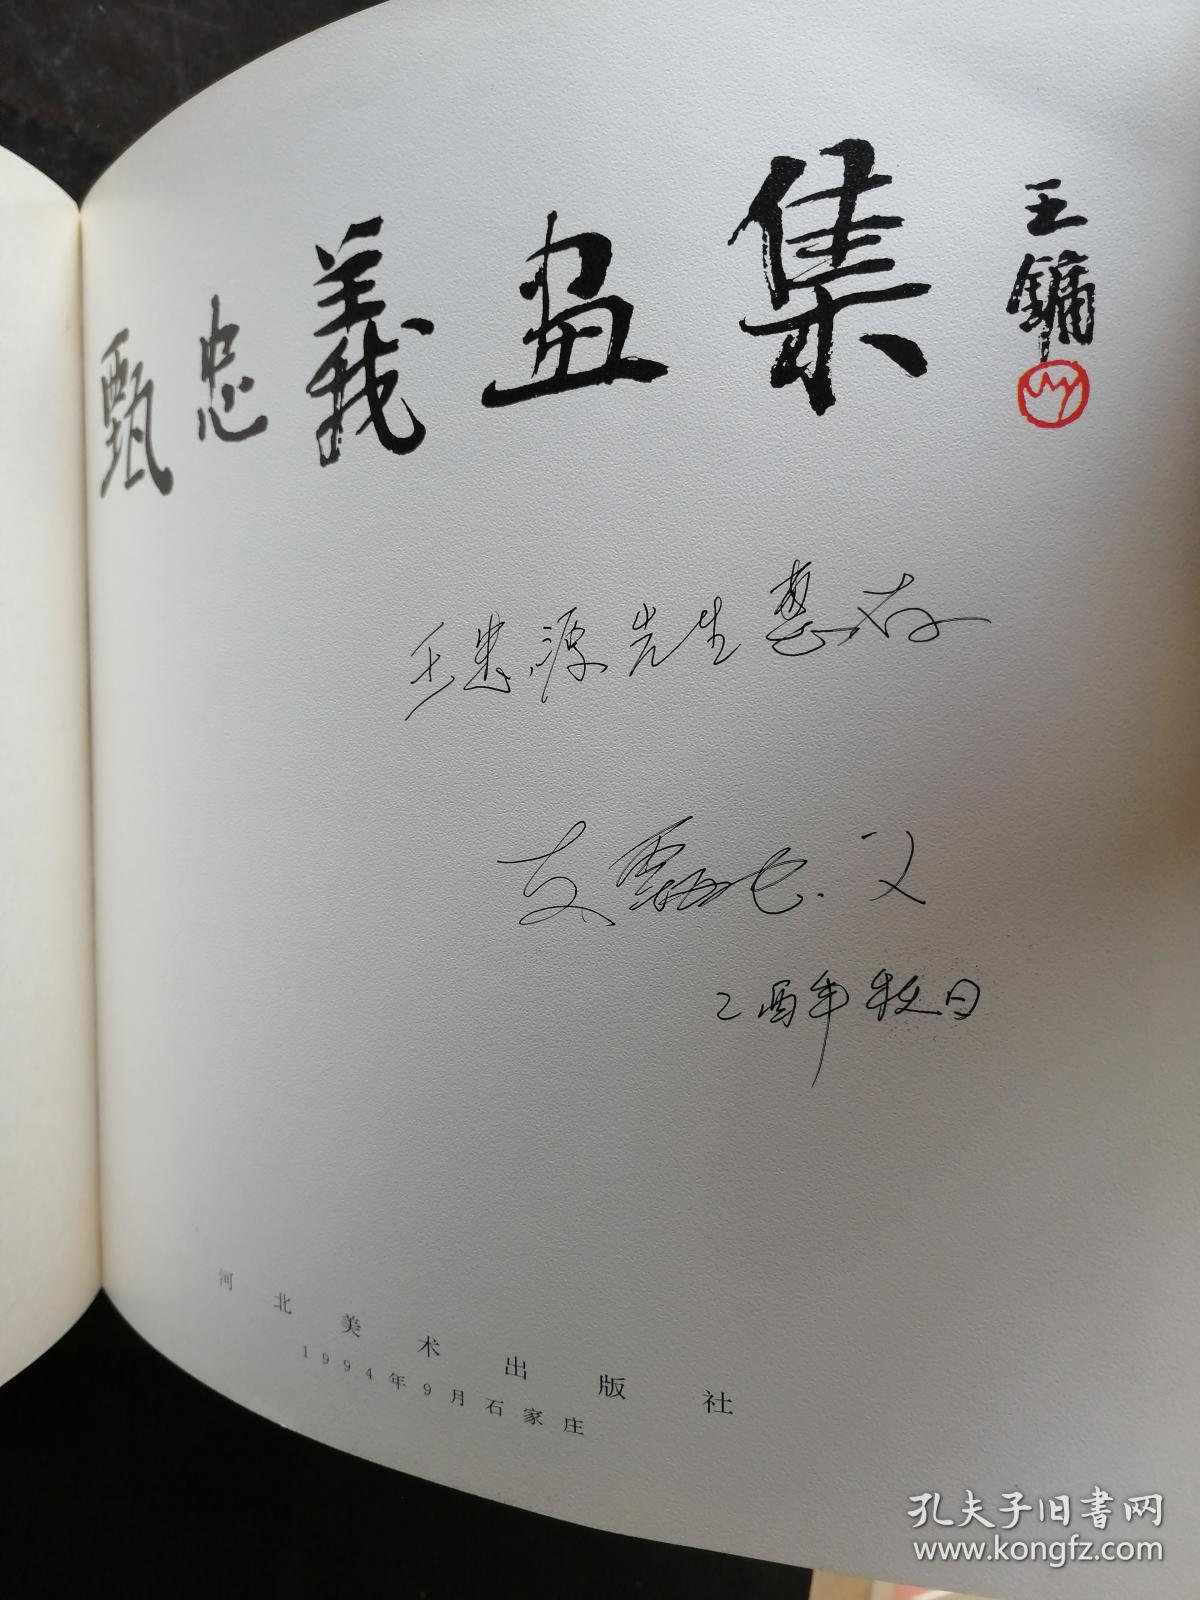 甄忠義畫集
王镛
王忠源先生惠存
友甄忠义
乙酉年秋日
河北美术出版社
1994年9月石家庄
孔夫子旧书网
www.kongfz.com